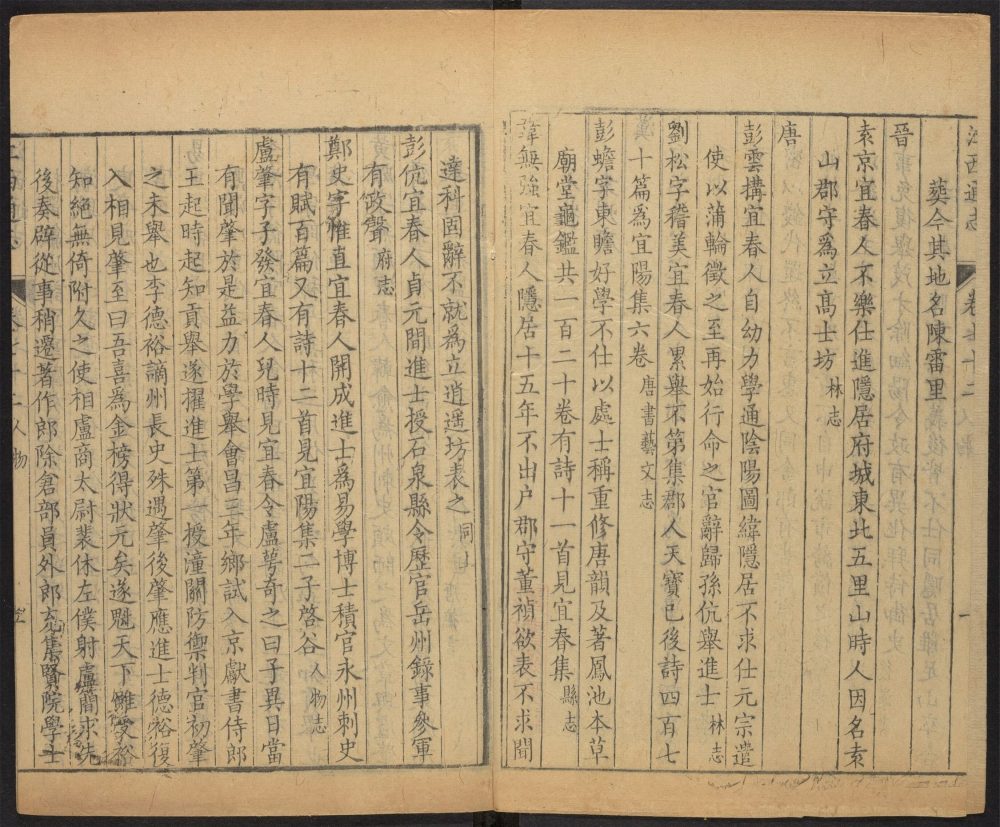 江西通志 卷七十二 人物 一
葬今其地名陳雷里
晉
袁京宜春人不樂仕進隱居府城東北五里山時人因名袁
山郡守為立高士坊 林志
唐
彭雲構宜春人自幼力學通陰陽圖緯隱居不求仕元宗遣
使以蒲輪徵之至再始行命之官辭歸孫伉舉進士 林志
劉松字稽美宜春人累舉不第集郡人天寶已後詩四百七
十篇為宜陽集六卷 唐書藝文志
彭蟾字東瞻好學不仕以處士稱重修唐韻及著鳳池本草
廟堂龜鑑共一百二十卷有詩十一首見宜春集 縣志
無強宜春人隱居十五年不出户郡守董禎欲表不求聞
達科固辭不就為立逍遥坊表之 同上
彭伉宜春人貞元間進士授石泉縣令歴官岳州錄事參軍
有政聲 府志
鄭史字惟直宜春人開成進士為易學博士積官永州刺史
有賦百篇又有詩十二首見宜陽集二子啓谷 人物志
盧肇字子發宜春人兒時見宜春令盧萼奇之曰子異日當
有聞肇於是益力於學舉會昌三年鄉試入京獻書侍郎
王起時起知貢舉遂擢進士第一授潼關防禦判官初肇
之未舉也李德裕謫州長史殊遇肇後肇應進士德裕復
入相見肇至曰吾喜為金榜得狀元矣遂魁天下雖受裕
知絕無倚附久之使相盧商太尉裴休左僕射盧簡求先
後奏辟從事稍遷著作郎除倉部員外郎充集賢院學士